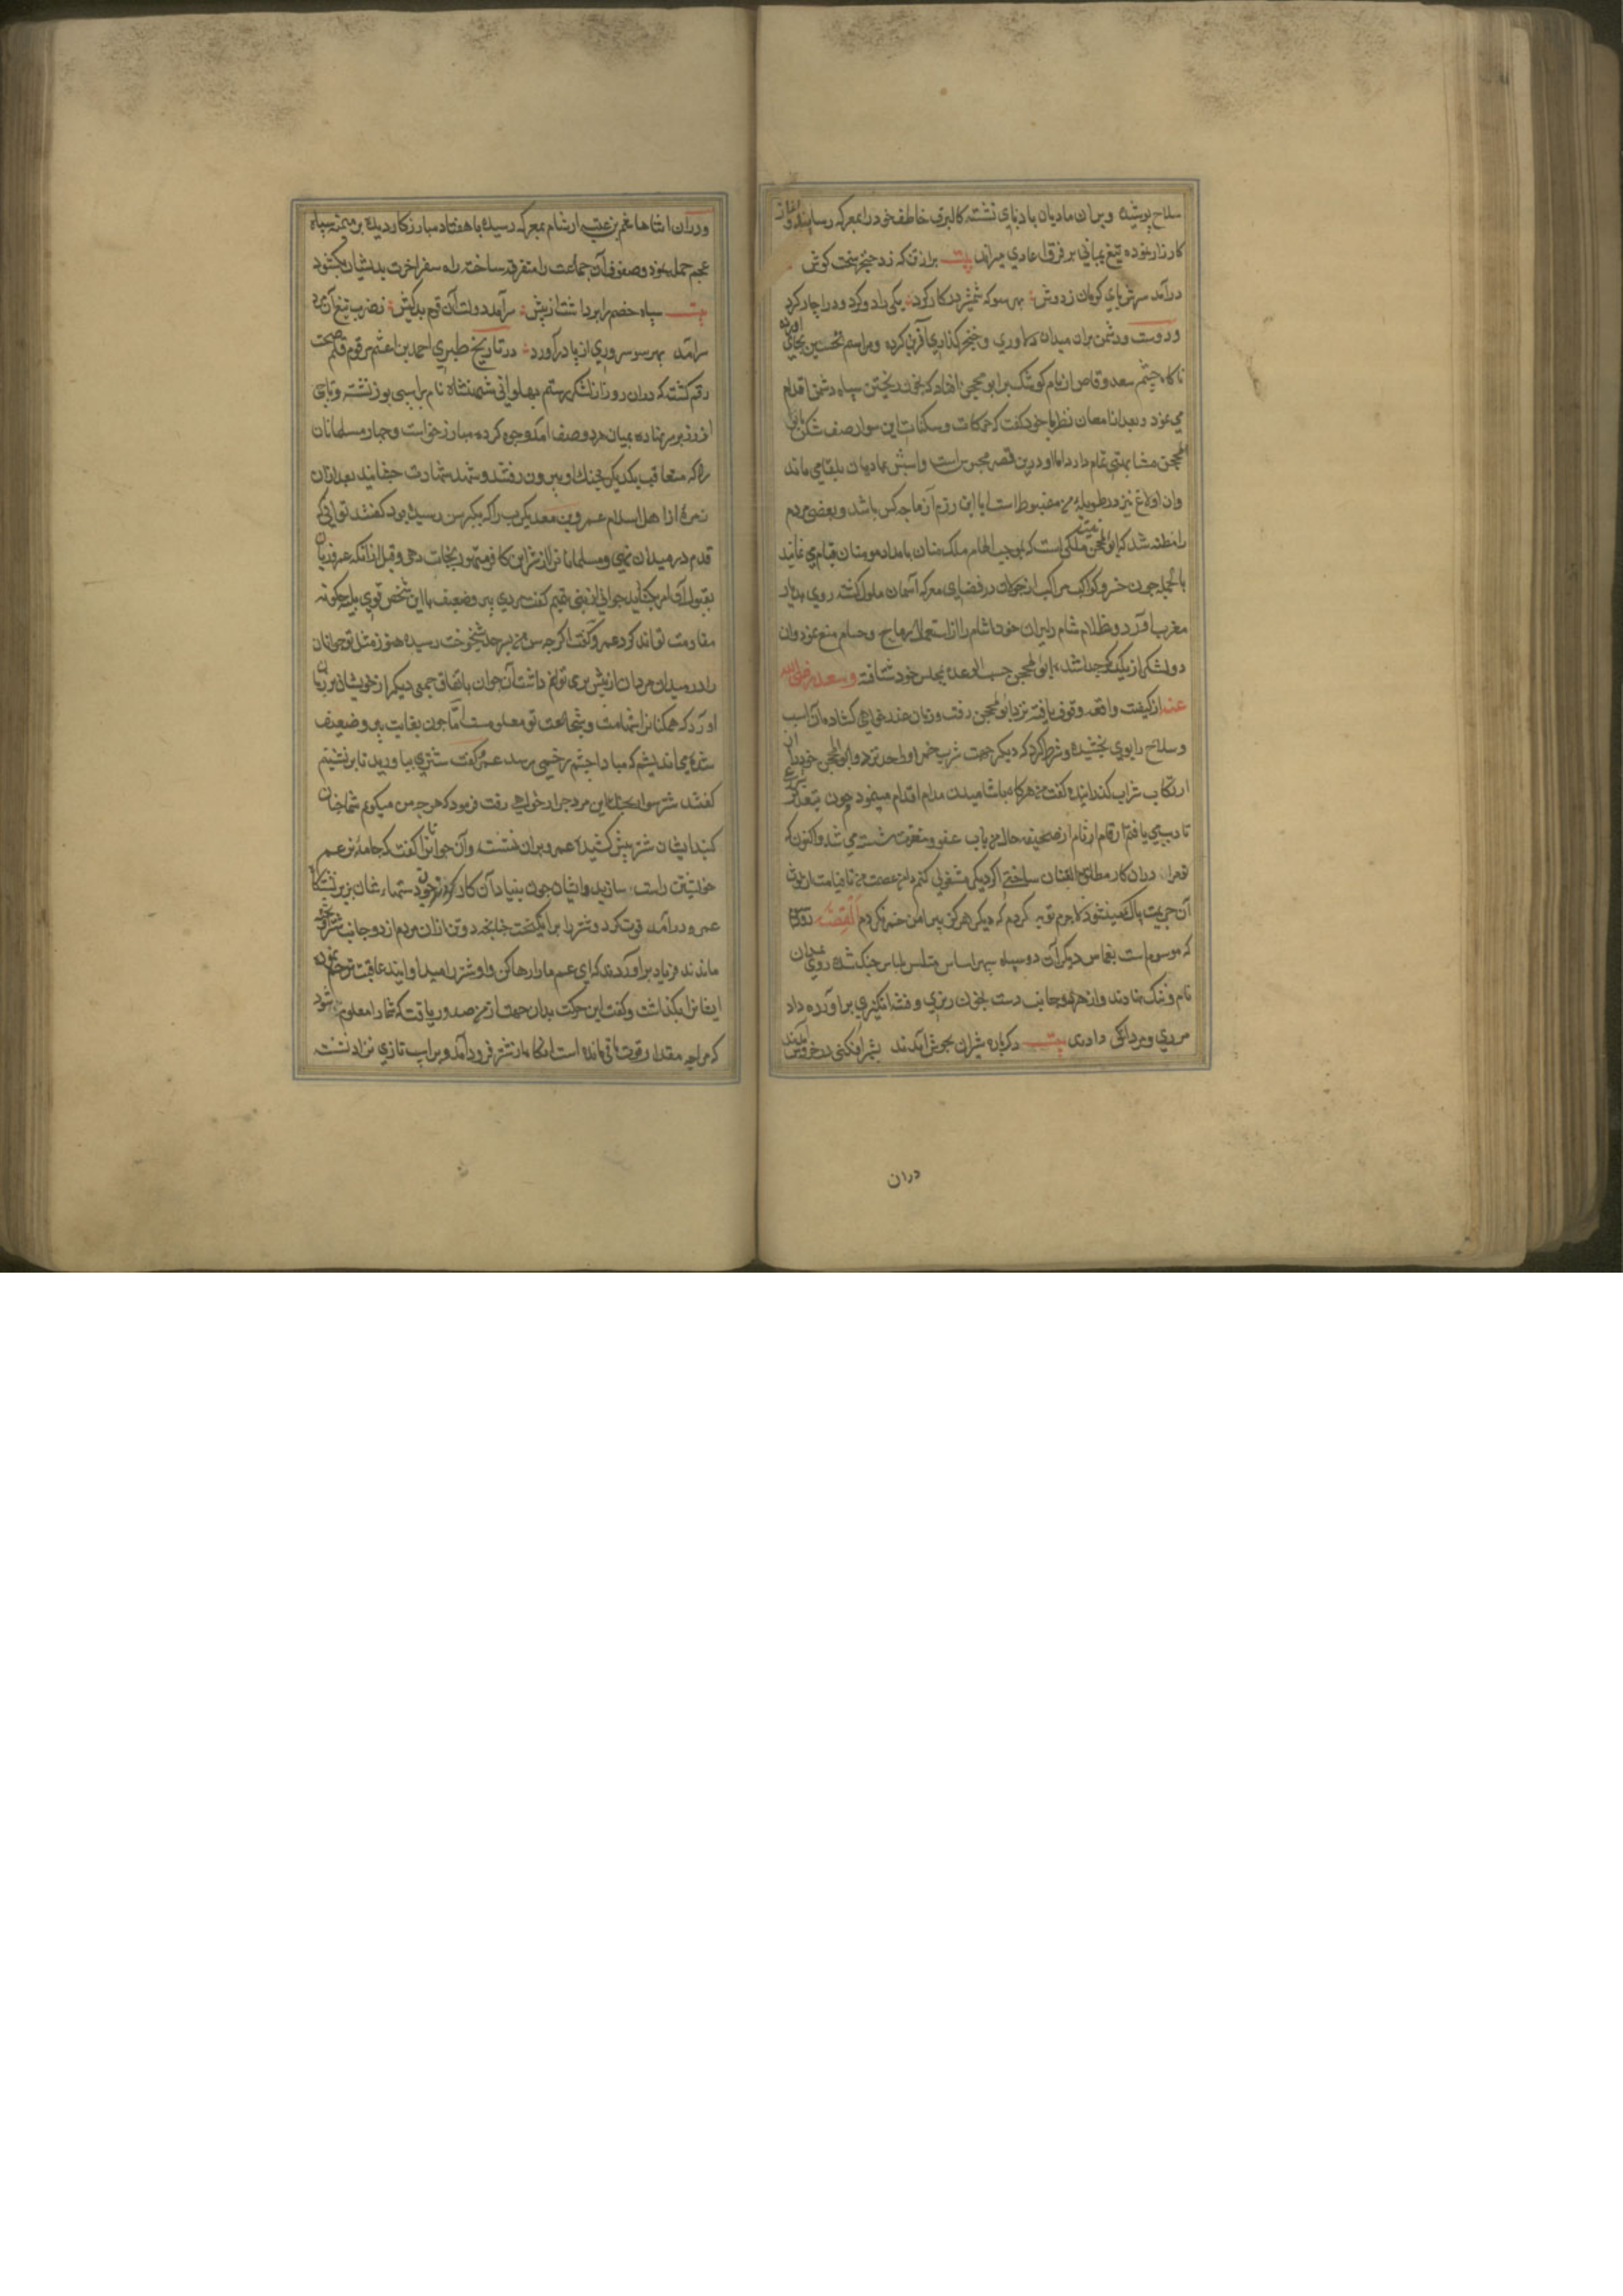 سلاح پوشیده و بران مادیان بادپای نشسته کالبرق خاطف خود را بمعرکه رسانید و آغاز
کارزار نموده تیغ یمانی بر فرق اعادی میراند بیت برازنکه زد خنجر سخت کوش
درآمد سرش پای کوبان ز دوش بهر سو که شمشیر در کار کرد یکی را دو کرد و دو را چار کرد
و دوست و دشمن بران میدان دلاوری و خنجر کذاری آفرین کرده و مراسم تحسین بجای آورده
ناکاه چشم سعد وقاص از بام کوشک بر ابو محجن افتاد که بخون ریختن سپاه دشمن اقدام
می نمود و بعد از امعان نظر با خود کفت که حرکات و سکنات این سوار صف شکن بابی
المحجن مشابهتی تمام دارد اما او درین قصر محبوس است و اسبش بمادیان بلقا می ماند
وان اولاغ نیز در طویله من مضبوط است ایا این رزم آزما چه کس باشد و بعضی مردم
را مظنه شد که ابو المحجن نیست ملکی است که بموجب الهام ملک منان بامداد مومنان قیام می نماید
بالجمله چون خسرو کواکب مراکب از جولان در فضای معرکه آسمان ملول کشته روی بدیار
مغرب آورد و ظلام شام دلیران خون اشام را از استعمال رماح و حسام منع نمود وان
دو لشکر از یکدیکر جدا شدند ابو المحجن حسب الوعده بمجلس خود شتافته و سعد رضی الله
عنه از کیفیت واقعه وقوف یافته نزد ابو المحجن رفت و زبان عذر خواهی کشاده آن اسب
و سلاح را بوی بخشیده و شرط کرد که دیکر جهت شرب خمر او را حد نزند و ابو المحجن خود را از
ارتکاب شراب کذرانیده کفت من هرکاه باشامیدن مدام اقدام مینمودم چون بحد شرع
تادیبی یافتم ارقام آثام از صحیفه حال من بآب عفو و مغفرت شسته می شد و اکنون که
تو مرا در آن کار مطلق العنان ساختی اکر دیکر مشغولی کنم دامن عصمت من تا قیامت از لوث
آن جریمت پاک نمیشود لاجرم توبه کردم که دیکر هرکز پیرامن خمر نکردم القصه روز
که موسوم است بغماس دیکر آن دو سپاه سپهر اساس متلبس لباس جنک شده روی بمیدان
نام و ننک نهادند و از هر دو جانب دست بخون ریزی و فتنه انکیزی برآورده داد
مردی و مردانکی دادند بیت دکرباره شیران بجوش آمدند بشیر افکنی در خروش آمدند
دران
و دران اثنا هاشم بن عتبه از شام بمعرکه رسیده با هفتاد مبارز کاردیده بر میمنه سپاه
عجم حمله نمود و صفوف آن جماعت را متفرق ساخته راه سفر آخرت بدیشان بکشود
بیت سپاه خصم را برداشت از پیش سرآمد دولت آن قوم بدکیش بضرب تیغ آنرا
سرآمد بهر سو سروری از پا درآورد در تاریخ طبری احمد بن اعثم مرقوم قلم صحت
رقم کشته که دران روز از لشکر رستم پهلوانی شهنشاه نام بر اسبی بور نشسته و تاجی
از زر بر سر نهاده بمیان هر دو صف آمد و جوی کرده مبارز خواست و چهار مسلمانان
را که متعاقب یکدیکر بجنک او بیرون رفتند و شهد شهادت چشانید بعد ازان
زمره از اهل اسلام عمرو بن معدیکرب را که بکبر سن رسیده بود کفتند توانی که
قدم در میدان نهی و مسلمانانرا از شر این کافر متهور نجات دهی و قبل ازانکه عمرو زبان
بقبول آن امر بکشاید جوانی از بنی تمیم کفت مردی پیر و ضعیف با این شخص قوی پیکر چکونه
مقاومت تواند کرد عمرو کفت اکرچه سن من بسرحد شیخوخت رسیده هنوز مثل تو جوانان
را در میدان مردان از پیش بر می توانم داشت آن جوان باتفاق جمعی دیکر از خویشان بر زبان
آورد که همکنانرا شهامت و شجاعت تو معلومست اما چون بغایت پیر و ضعیف
شده می اندیشم که مبادا چشم زخمی برسد عمرو کفت شتری بیاورید تا بر نشینم
کفتند شتر سوار بجنک این مرد جرار خواهی رفت فرمود که هرچه من میکویم شما چنان
کنید ایشان شتر پیش کشیدند عمرو بران نشست و آن جوانانرا کفت که جامه ابن عم
خویشتن راست سازید و ایشان چون بنیاد آن کار کردند عمرو چون دستهاء شان بزیر تنکاه
عمرو درآمد قوت کرد و شتر را برانکیخت چنانچه دو تن ازان مردم از دو جانب شتر آویخته
ماندند فریاد برآوردند که ای عم ما را رها کن و او شتر را میدوانید عاقبت ترحم نموده
ایشانرا بکذاشت و کفت این حرکت بدان جهت از من صدور یافت که شما را معلوم شود
که مرا چه مقدار قوت باقی مانده است آنکاه از شتر فرود آمد و بر اسب تازی نژاد نشسته